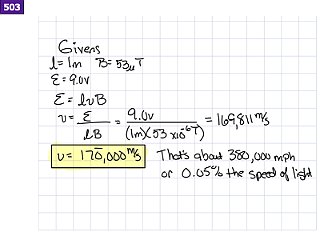 503
Givens
l=1m B=53μT
ε=9.0v
ε=lvB
v= ε/lB = 9.0v/(1m)(53x10⁻⁶T) = 169,811 m/s
v= 170,000 m/s That's about 380,000 mph
or 0.05% the speed of light